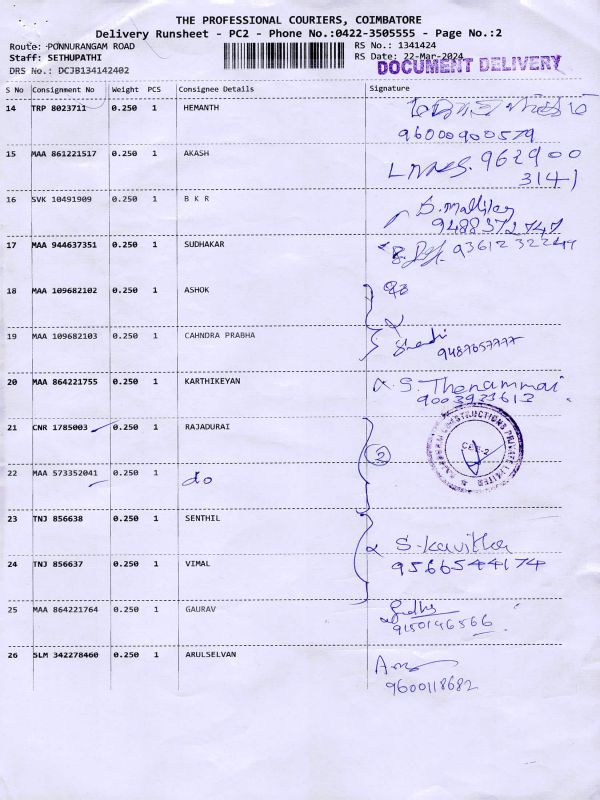 THE PROFESSIONAL COURIERS, COIMBATORE
Delivery Runsheet - PC2 - Phone No.:0422-3505555 - Page No.:2
Route: PONNURANGAM ROAD RS No.: 1341424
Staff: SETHUPATHI RS Date: 22-Mar-2024
DRS No.: DCJB134142402 DOCUMENT DELIVERY
S No Consignment No Weight PCS Consignee Details Signature
14 TRP 8023711 0.250 1 HEMANTH
9600900579
15 MAA 861221517 0.250 1 AKASH 962900
3141
16 SVK 10491909 0.250 1 B K R
9488372747
17 MAA 944637351 0.250 1 SUDHAKAR 9361232247
18 MAA 109682102 0.250 1 ASHOK
19 MAA 109682103 0.250 1 CAHNDRA PRABHA
9487657777
20 MAA 864221755 0.250 1 KARTHIKEYAN S. Thenammai
9003923613
21 CNR 1785003 0.250 1 RAJADURAI
2
22 MAA 573352041 0.250 1 do
23 TNJ 856638 0.250 1 SENTHIL
S. Kavitha
24 TNJ 856637 0.250 1 VIMAL 9566544174
25 MAA 864221764 0.250 1 GAURAV
9150146566
26 SLM 342278460 0.250 1 ARULSELVAN
9600118682